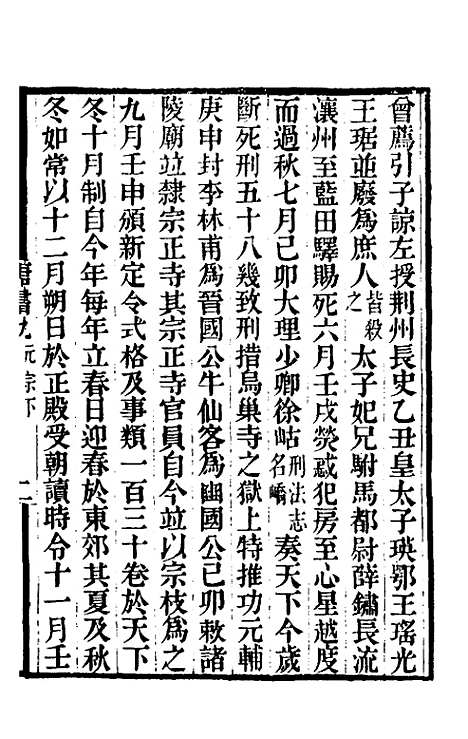 曾薦引子諒左授荆州長史乙丑皇太子瑛鄂王瑤光
王琚並廢爲庶人皆殺之太子妃兄駙馬都尉薛鏽長流
瀼州至藍田驛賜死六月壬戌熒惑犯房至心星越度
而過秋七月己卯大理少卿徐岵刑法志名嶠奏天下今歲
斷死刑五十八幾致刑措烏巢寺之獄上特推功元輔
庚申封李林甫爲晉國公牛仙客爲豳國公己卯敕諸
陵廟竝隸宗正寺其宗正寺官員自今竝以宗枝爲之
九月壬申頒新定令式格及事類一百三十卷於天下
冬十月制自今年每年立春日迎春於東郊其夏及秋
冬如常以十二月朔日於正殿受朝讀時令十一月壬
唐書九 玄宗下 二